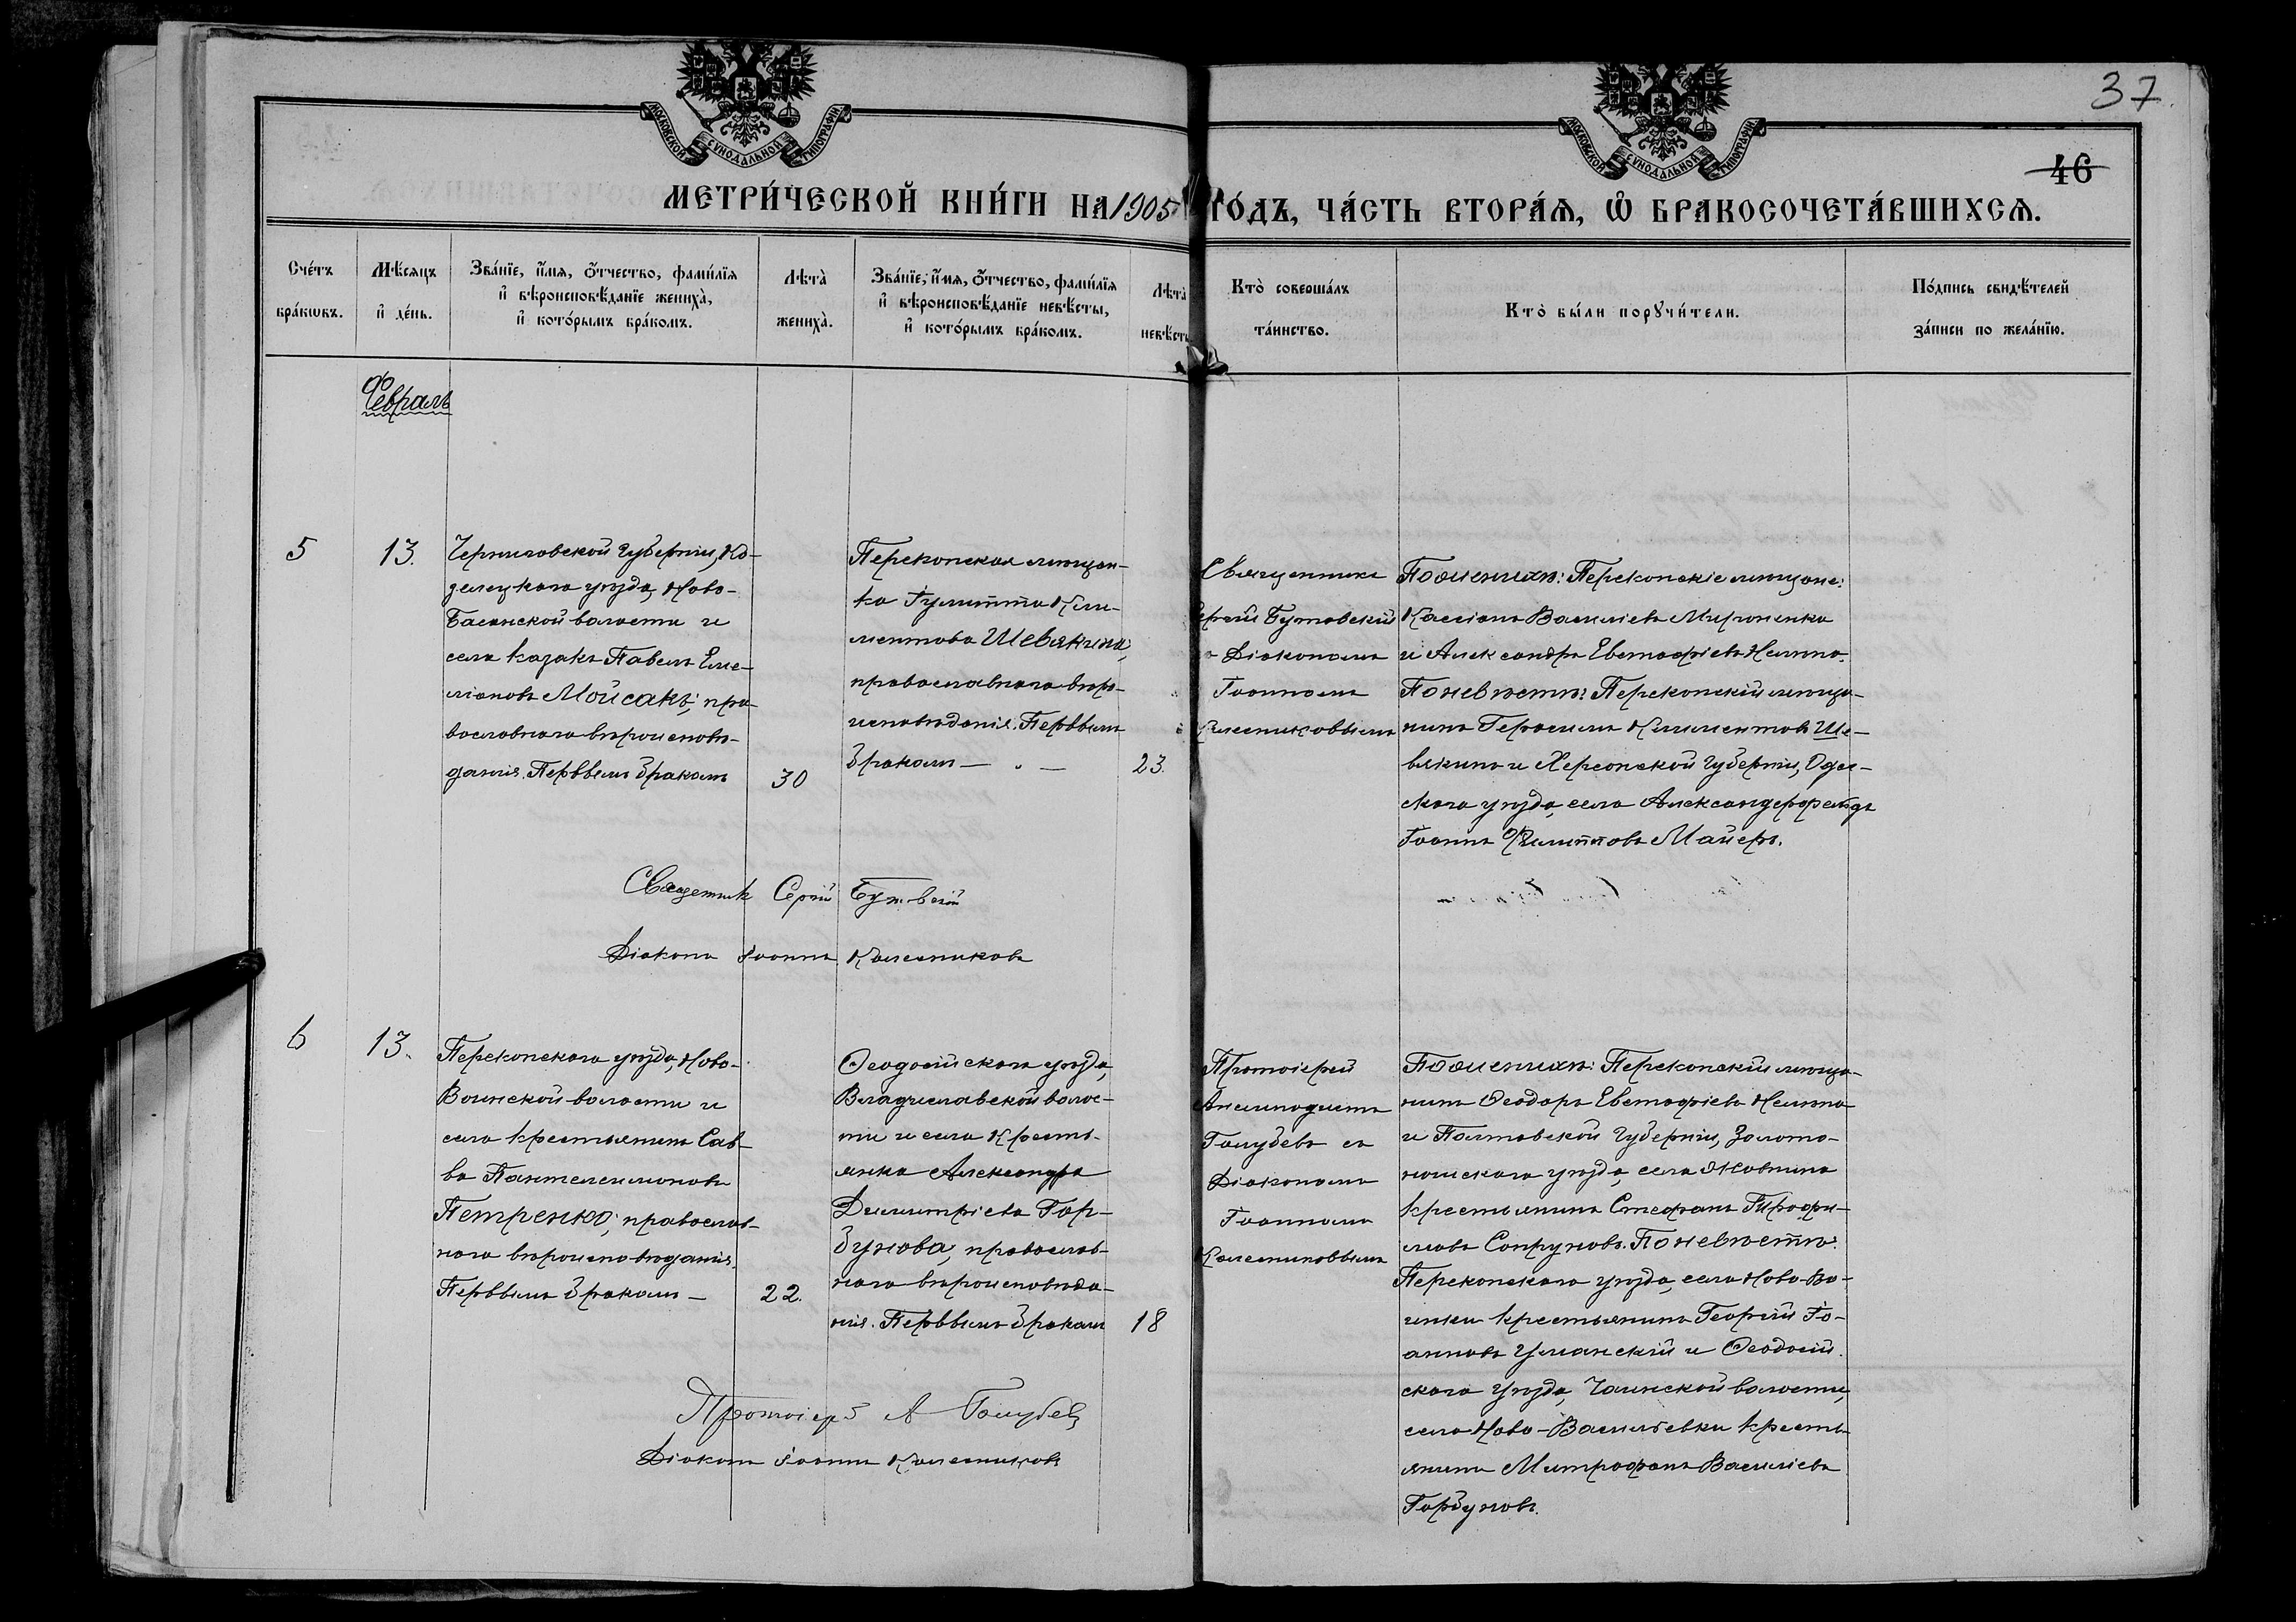 37.
46
МОСКОВСКОЙ СѴНОДАЛЬНОЙ ТИПОГРАФІИ
МОСКОВСКОЙ СѴНОДАЛЬНОЙ ТИПОГРАФІИ
МЕТРИ́ЧЕСКОЙ КНИ́ГИ НА 1905 ГО́ДЪ, ЧА́СТЬ ВТОРА́Ѧ, Ѽ БРАКОСОЧЕТА́ВШИХСѦ.
Сче́тъ бра́кѡвъ.
Мѣ́сяцъ и҆ де́нь.
Зва́нїе, и҆́мя, ѻ҆́тчество, фами́лїя
и҆ вѣроисповѣ́данїе жениха̀,
и҆ кото́рымъ бра́комъ.
Лѣта̀ жениха̀.
Зва́нїе, и҆́мя, ѻ҆́тчество, фами́лїя
и҆ вѣроисповѣ́данїе невѣ́сты,
и҆ кото́рымъ бра́комъ.
Лѣта̀ невѣ́сты
Кто̀ соверша́лъ та́инство.
Кто̀ бы́ли порꙋчи́тели.
По́дпись свидѣ́телей
за́писи по жела́нїю.
Февраль
5
13.
Черниговской губерніи, Ко-
зелецкаго уѣзда, Ново-
Басанской волости и
села казакъ Павелъ Еме-
ліановъ Мойсакъ; пра-
вославнаго вѣроисповѣ-
данія. Первымъ бракомъ
30
Перекопская мѣщан-
ка Гулитта Кли-
ментова Шевякина,
православнаго вѣро-
исповѣданія. Первымъ
бракомъ — „ —
23.
Священникъ
Сергій Бутовскій
Діакономъ
Іоанномъ
Колесниковымъ
По женихѣ: Перекопскіе мѣщане:
Кассіанъ Василіевъ Мироненко
и Александръ Евстафіевъ Нелипа.
По невѣстѣ: Перекопскій мѣща-
нинъ Герасимъ Климентовъ Ше-
вякинъ и Херсонской губерніи, Одес-
скаго уѣзда, села Александерфельдъ
Іоаннъ Филипповъ Майеръ.
Священникъ Сергій Бутовскій
Діаконъ Іоаннъ Колесниковъ
6
13.
Перекопскаго уѣзда, Ново-
Воинской волости и
села крестьянинъ Сав-
ва Пантелеимоновъ
Петренко; православ-
наго вѣроисповѣданія.
Первымъ бракомъ —
22.
Ѳеодосійскаго уѣзда,
Владиславской волос-
ти и села кресть-
янка Александра
Димитріева Гор-
бунова, православ-
наго вѣроисповѣда-
нія. Первымъ бракомъ
18
Протоіерей
Анемподистъ
Голубевъ съ
Діакономъ
Іоанномъ
Колесниковымъ
По женихѣ: Перекопскій мѣща-
нинъ Ѳеодоръ Евстафіевъ Нелипа
и Полтавской губерніи, Золото-
ношскаго уѣзда, села
крестьянинъ Стефанъ Трофи-
мовъ Сопруновъ. По невѣстѣ:
Перекопскаго уѣзда, села Ново-Во-
инки крестьянинъ Георгій Іо-
анновъ Уманскій и Ѳеодосій-
скаго уѣзда, волости,
села Ново-Васильевки кресть-
янинъ Митрофанъ Василіевъ
Горбуновъ.
Протоіерей А Голубев
Діаконъ Іоаннъ Колесниковъ